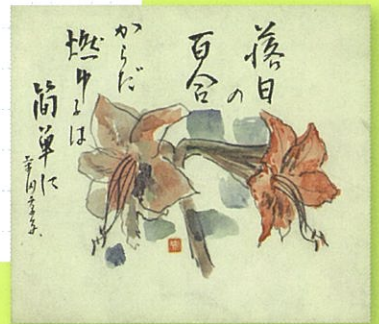 落日
の
百合
からだ
燃ゆるは
簡単に